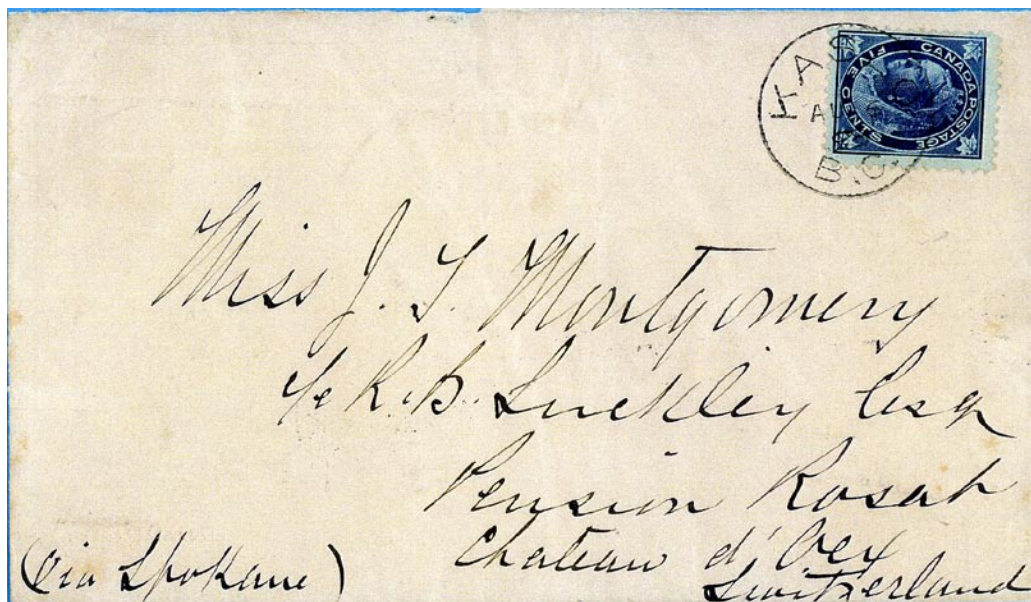 CANADA POSTAGE
FIVE CENTS
B.C.
Miss J. T. Montgomery
c/o R. B. Luckley Esq
Pension Rosat
Chateau d'Oex
Switzerland
(via Spokane)